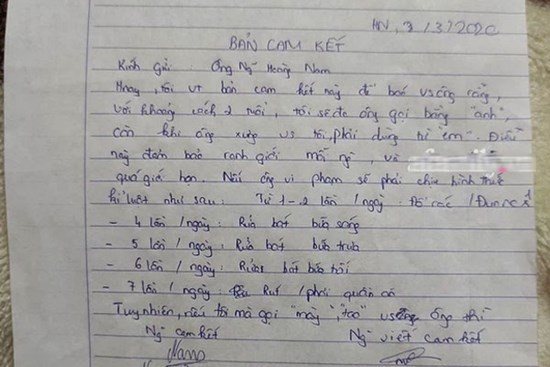 HN, 3/3/2020
BẢN CAM KẾT
Kính gửi Ông Ng~ Hoàng Nam
Hnay, tôi VT bản cam kết này để báo vs ông rằng,
với khoảng cách 2 tuổi, tôi sẽ đc ông gọi bằng "anh",
còn khi ông xưng vs tôi, phải dùng từ "em". Điều
này đảm bảo ranh giới mỗi ng, và
quá giới hạn. Nếu ông vi phạm sẽ phải chịu hình thức
kỉ luật như sau: Từ 1-2 lần/ngày: Đổ rác
- 4 lần/ngày: Rửa bát bữa sáng
- 5 lần/ngày: Rửa bát bữa trưa
- 6 lần/ngày: Rửa bát bữa tối
- 7 lần/ngày: /phơi quần áo
Tuy nhiên, nếu tôi mà gọi "mày", "tao" vs ông thì
Ng cam kết Ng viết cam kết
Nam